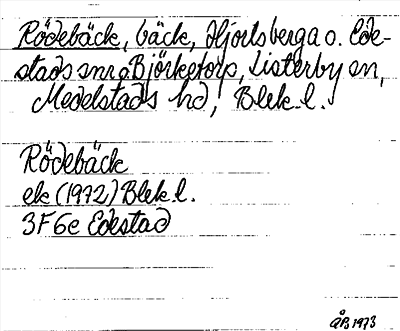 Rödebäck, bäck, Hjortsberga o. Ede-
stads snr o Björketorp, Listerby sn,
Medelstads hd, Blek l.
Rödebäck
ek (1972) Blek l.
3F 6e Edestad
ÅB 1973